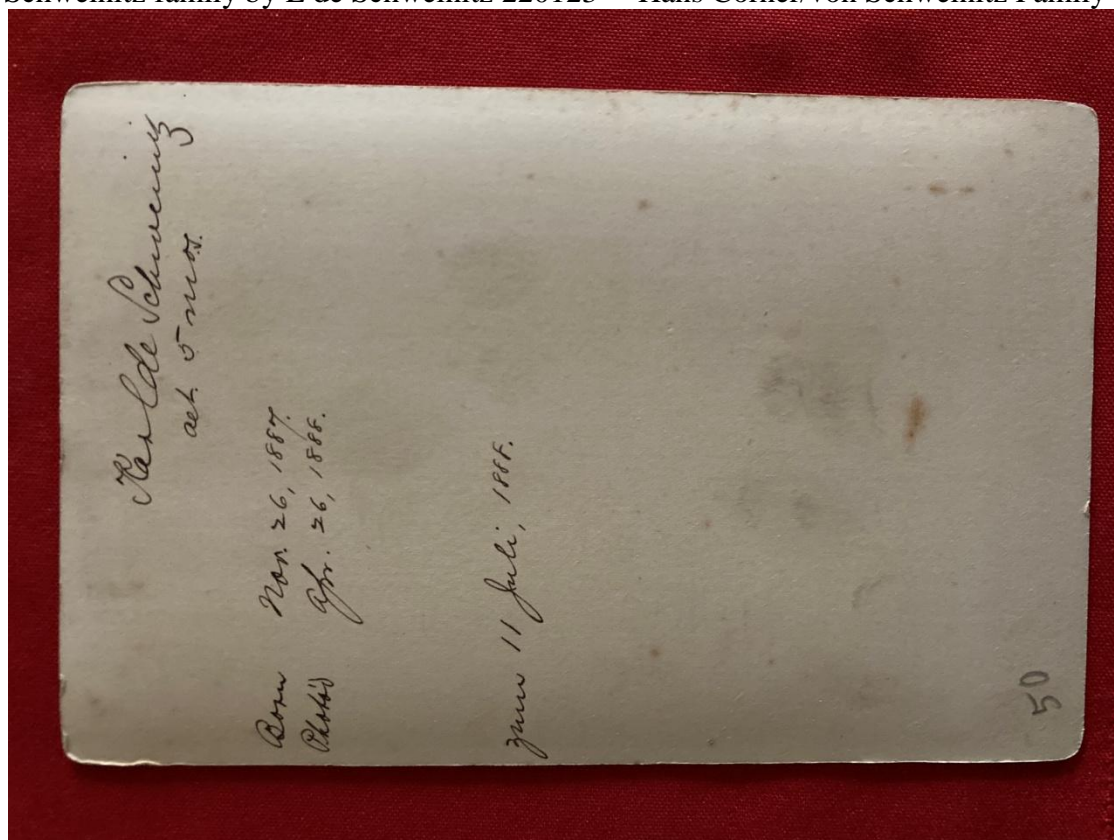 Schweinitz family by L de Schweinitz 220123 Hans Corner/von Schweinitz Family
Karl de Schweinitz
aet. 5 mos.
Born Nov. 26, 1887.
Photo'd Apr. 26, 1888.
zum 11 Juli, 1888.
50